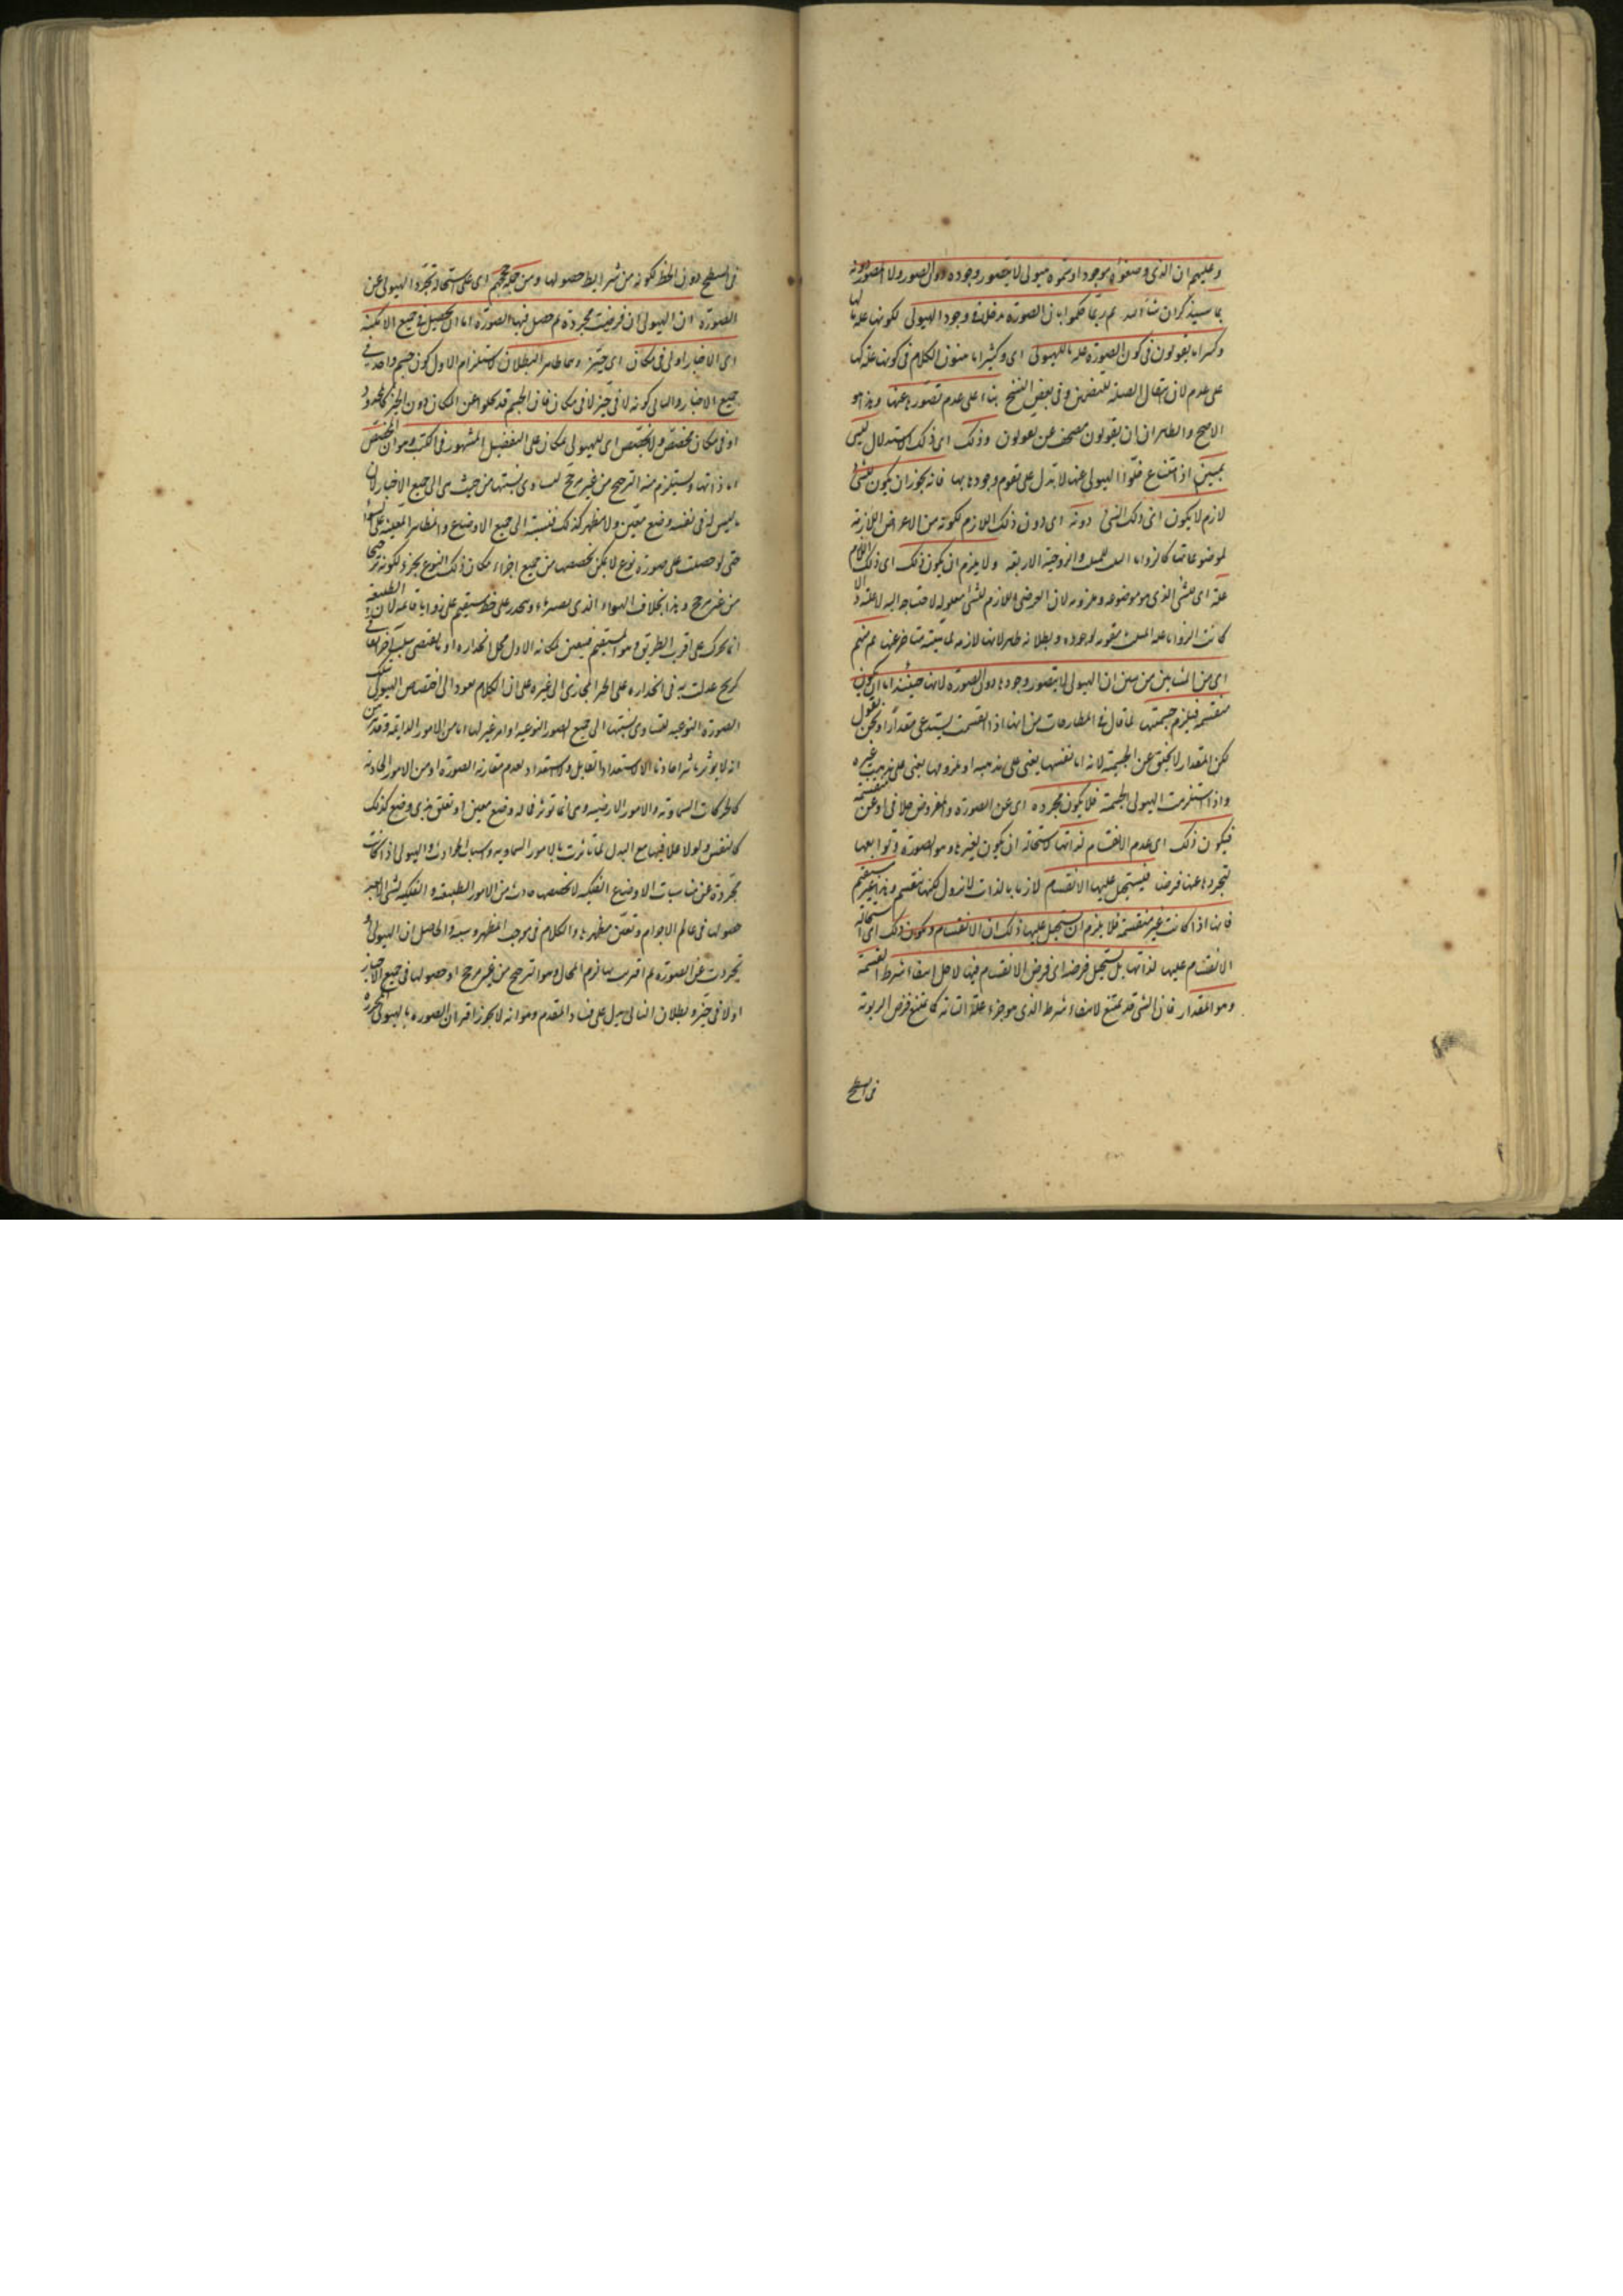 وعليهم ان الذى وضعوه موجودا وسموه هيولى لا يتصور وجوده دون الصور ولا الصور دونه
بما سيذكر ان شاء الله ثم ربما حكموا بان الصورة مدخلا فى وجود الهيولى لكونها علة ما لها
وكثيرا ما يقولون فى كون الصورة علة ما للهيولى اى وكثيرا ما يبنون الكلام فى كونها علة لها
على عدم وفى بعض النسخ بناء على عدم تصور خلوها عنها وهذا هو
الاصح والظاهر ان يقولون مصحف عن يعولون وذلك اى ذلك الاستدلال ليس
بمبين اذ امتناع خلو الهيولى عنها لا يدل على تقوم وجودها بها فانه يجوز ان يكون للشئ
لازم لا يكون اى ذلك الشئ دونه اى دون ذلك اللازم لكونه من الاعراض اللازمة
لموضوعاتها كالزوايا الثلث للمثلث والزوجية للاربعة ولا يلزم ان يكون ذلك اى ذلك اللازم
علة اى للشئ الذى هو موضوعه وملزومه لان العرضى واللازم للشئ معلول له لاحتياجه اليه لا علة والا
كانت الزوايا علة المثلث مقومة لوجوده وبطلانه ظاهر لانها لازمة لماهيته متاخر عنها ثم منهم
اى من المشائين من يبين ان الهيولى لا يتصور وجودها دون الصورة لانها حينئذ اما ان يكون
منقسمة فيلزم جسميتها لما قال فى المطارحات من انها اذا انقسمت يستدعى مقدارا ونحن نقول
لكن المقدار لا يتحقق عن الجسمية لانه اما نفسها يعنى على مذهبه او ملزومها يعنى على مذهب غيره
واذا استلزمت الهيولى الجسمية فلا يكون مجردة اى عن الصورة والمفروض خلافه او غير منقسمة
فيكون ذلك اى عدم الانقسام لذاتها لاستحالة ان يكون لغيرها وهو الصورة وتوابعها
لتجردها عنها فرضا فيستحيل عليها الانقسام لان ما بالذات لا يزول لكنها تنقسم وهذا غير مستقيم
فانها اذا كانت غير منقسمة فلا يلزم ان يستحيل عليها ذلك اى الانقسام ويكون ذلك اى استحالة
الانقسام عليها لذاتها بل يستحيل فرضه اى فرض الانقسام فيها لاجل انتفاء شرط القسمة
وهو المقدار فان الشئ قد يمتنع لانتفاء شرط الذى هو جزء علته التامة كما يمتنع فرض الزاوية
فى السطح
فى السطح دون الخط لكونه من شرايط حصولها ومن جملة حججهم اى على استحالة تجرد الهيولى عن
الصورة ان الهيولى ان فرضت مجردة ثم حصل فيها الصورة اما ان تحصل فى جميع الامكنة
اى الاحياز او لا فى مكان اى حيز وهما ظاهرا البطلان لاستلزام الاول كون جسم واحد فى
جميع الاحياز والثانى كونه لا فى حيز لا فى مكان فان الجسم قد يخلو عن المكان دون الحيز كالمحدد
او فى مكان مخصص ولا مخصص اى للهيولى بمكان على التفصيل المشهور فى الكتب وهو ان المخصص
اما ذاتها ويستلزم منه الترجيح من غير مرجح لتساوى نسبتها من حيث هى الى جميع الاحياز لان
ما ليس له فى نفسه وضع معين ولا مظهر كذلك فنسبته الى جميع الاوضاع والمظاهر المعينة على السواء
حتى لو حصلت على صورة نوع لا يمكن تخصصها من جميع اجزاء مكان ذلك النوع بجزء لكونه ترجيحا
من غير مرجح وهذا بخلاف الهواء الذى يصير ماء وينحدر على خط مستقيم على زوايا قائمة لان الطبيعة
انما تحرك على اقرب الطريق وهو المستقيم فيتعين مكانه الاول محل انحداره او ما يقتضى سلبية اخرى فى
كريح عدلت به فى انحداره على الحيز المحازى الى غيره على ان الكلام يعود الى اختصاص الهيولى بتلك
الصورة النوعية لتساوى نسبتها الى جميع الصور النوعية او امر غير لها اما من الامور الدايمة
انه لا يؤثر تاثيرا حادثا الا لاستعداد القابل ولا استعداد لعدم مقارنة الصورة او من الامور الحادثة
كالحركات السماوية والامور الارضية وهى انما تؤثر فيما له وضع معين او تعلق بذى وضع كذلك
كالنفس ولولا علاقتها مع البدن لما تاثرت بالامور السماوية واسباب الحوادث والهيولى اذا كانت
مجردة عن مناسبات الاوضاع الفلكية لا تخصصها حادث من الامور الطبيعية والفلكية لشئ الا بعد
حصولها فى عالم الاجرام وتعين مظهرها والكلام فى موجب المظهر وسببه والحاصل ان الهيولى لو
تجردت عن الصورة ثم اقترنت بها لزم المحال وهو الترجيح من غير مرجح او حصولها فى جميع الاحياز
او لا فى حيز وبطلان التالى يدل على فساد المقدم وهو انه لا يجوز اقتران الصورة بالهيولى المجردة